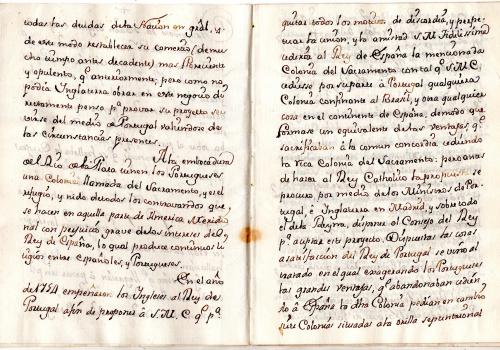 todas las deudas dela Nacion en gràl, y
de este modo restablecer su comercio (de mu
cho tiempo antes decadente) mas floreciente
y opulento, qᵉ anteriormente; pero como no
podia Inglaterra obrar en este negocio di-
rectamente penso pᵃ provar su proyecto ser
virse del medio de Portugal valiendose de
las circunstancias presentes.
A la embocadura
del Rio de la Plata tienen los Portugueses
una Colonia llamada del Sacramento, y es el
refugio, y nido de todos los contravandos que
se hacen en aquella parte de America Meridio
nal con perjuicio grave de los intereses del
Rey de España, lo qual produce continuos li
tigios entre Españoles, y Portugueses.
En el año
de 1751 empeñaron los Ingleses al Rey de
Portugal afin de proponer à S. M. C. qᵉ pᵃ
quitar todos los motivos de discordia, y perpe-
tuar la union, y la amistad S. M. Fidelisima
cederia al Rey de España la mencionada
Colonia del Sacramento con tal qᵉ S. M. C.
cediesse por su parte à Portugal qualquiera
Colonia confinante al Brasil, y otra qualquiera
cosa en el continente de España, de modo que
formase un equivalente de las ventajas, qᵉ
sacrificaban à la comun concordia cediendo
la rica Colonia del Sacramento: pero antes
de hacer al Rey Catholico la propuesta se
procuro por medio de los Ministros de Por-
tugal, è Inglaterra en Madrid, y sobre todo
el de la Reyna, disponer el Consejo del Rey
pᵃ aceptar este proyecto. Dispuestas las cosas
a satisfaccion del Rey de Portugal se vino al
tratado en el qual exagerando los Portugueses
las grandes ventajas, qᵉ abandonaban cedien
do à España la dha Colonia pedian en cambio
siete Colonias situadas a la orilla septentrional